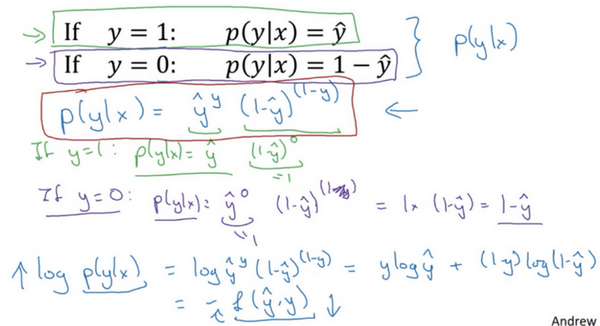 → If y = 1: p(y|x) = ŷ
→ If y = 0: p(y|x) = 1 − ŷ } p(y|x)
p(y|x) = ŷ^y (1-ŷ)^(1-y) ←
If y=1: p(y|x) = ŷ (1-ŷ)^0 =1
If y=0: p(y|x) = ŷ^0 (1-ŷ)^(1-y) = 1 x (1-ŷ) = 1-ŷ
=1
↑ log p(y|x) = log ŷ^y (1-ŷ)^(1-y) = y log ŷ + (1-y) log (1-ŷ)
= - ℒ(ŷ, y) ↓
Andrew